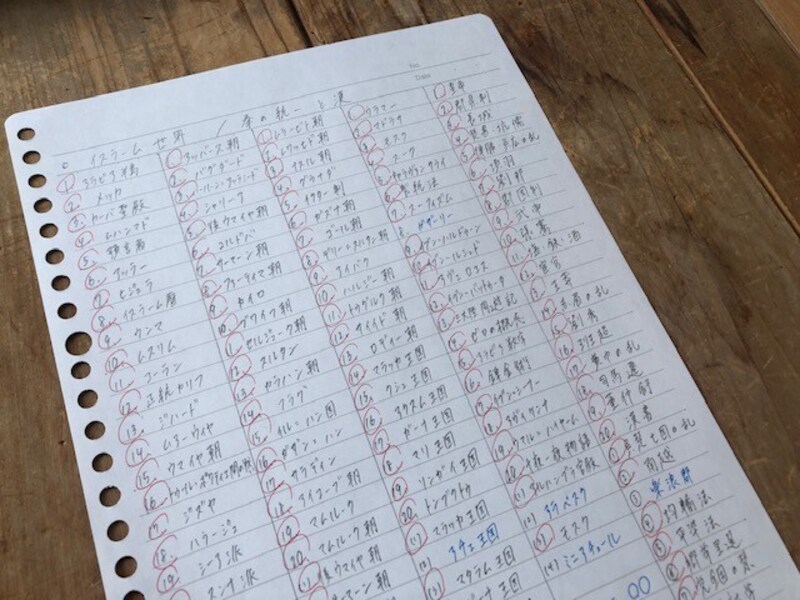 No.
Date
○ イスラーム世界 / 秦の統一と漢
① アラビア半島
② メッカ
③ カーバ聖殿
④ ムハンマド
⑤ 預言者
⑥ アッラー
⑦ ヒジュラ
⑧ イスラーム暦
⑨ ウンマ
⑩ ムスリム
⑪ コーラン
⑫ 正統カリフ
⑬ ジハード
⑭ ムアーウィヤ
⑮ ウマイヤ朝
⑯ トゥール・ポワティエ間の戦
⑰ ジズヤ
⑱ ハラージュ
⑲ シーア派
スンナ派
① アッバース朝
② バグダード
③ ハールーン=アッラシード
④ シャリーア
⑤ 後ウマイヤ朝
⑥ コルドバ
⑦ サーマーン朝
⑧ ファーティマ朝
⑨ カイロ
⑩ ブワイフ朝
⑪ セルジューク朝
⑫ スルタン
⑬ カラハン朝
⑭ フラグ
⑮ イル=ハン国
⑯ ガザン=ハン
⑰ サラディン
⑱ アイユーブ朝
⑲ マムルーク
⑳ マムルーク朝
(1) 後ウマイヤ朝
① ムラービト朝
② ムワッヒド朝
③ ナスル朝
④ グラナダ
⑤ イクター制
⑥ ガズナ朝
⑦ ゴール朝
⑧ デリー=スルタン朝
⑨ アイバク
⑩ ハルジー朝
⑪ トゥグルク朝
⑫ サイイド朝
⑬ ロディー朝
⑭ マラッカ王国
⑮ クシュ王国
⑯ アクスム王国
⑰ ガーナ王国
⑱ マリ王国
⑲ ソンガイ王国
⑳ トンブクトゥ
(1) マラッカ王国
(2) アチェ王国
(3) マタラム王国
① ウラマー
② マドラサ
③ モスク
④ スーク
⑤ キャラヴァンサライ
⑦ スーフィズム
⑧ ガザーリー
⑨ イブン=ハルドゥーン
⑩ イブン=ルシュド
⑪ アヴェロエス
⑫ イブン=バットゥータ
⑬ 三大陸周遊記
⑭ ゼロの概念
⑮ アラビア数字
⑯ 錬金術
⑰ イブン=シーナー
⑱ アヴィケンナ
⑲ ウマル=ハイヤーム
⑳ 千夜一夜物語
(1) アルハンブラ宮殿
(2) アラベスク
(3) モスク
(4) ミニアチュール
① 皇帝
② 郡県制
③ 長城
④ 焚書・坑儒
⑤ 陳勝・呉広の乱
⑥ 項羽
⑦ 劉邦
⑧ 郡国制
⑨ 武帝
⑩ 張騫
⑪ 塩・鉄・酒
⑫ 宦官
⑬ 王莽
⑭ 赤眉の乱
⑮ 劉秀
⑯ 班超
⑰ 黄巾の乱
⑱ 司馬遷
⑲ 董仲舒
⑳ 漢書
(1) 呉楚七国の乱
(2) 南越
(3) 楽浪郡
(4) 均輸法
(5) 平準法
(6) 郷挙里選